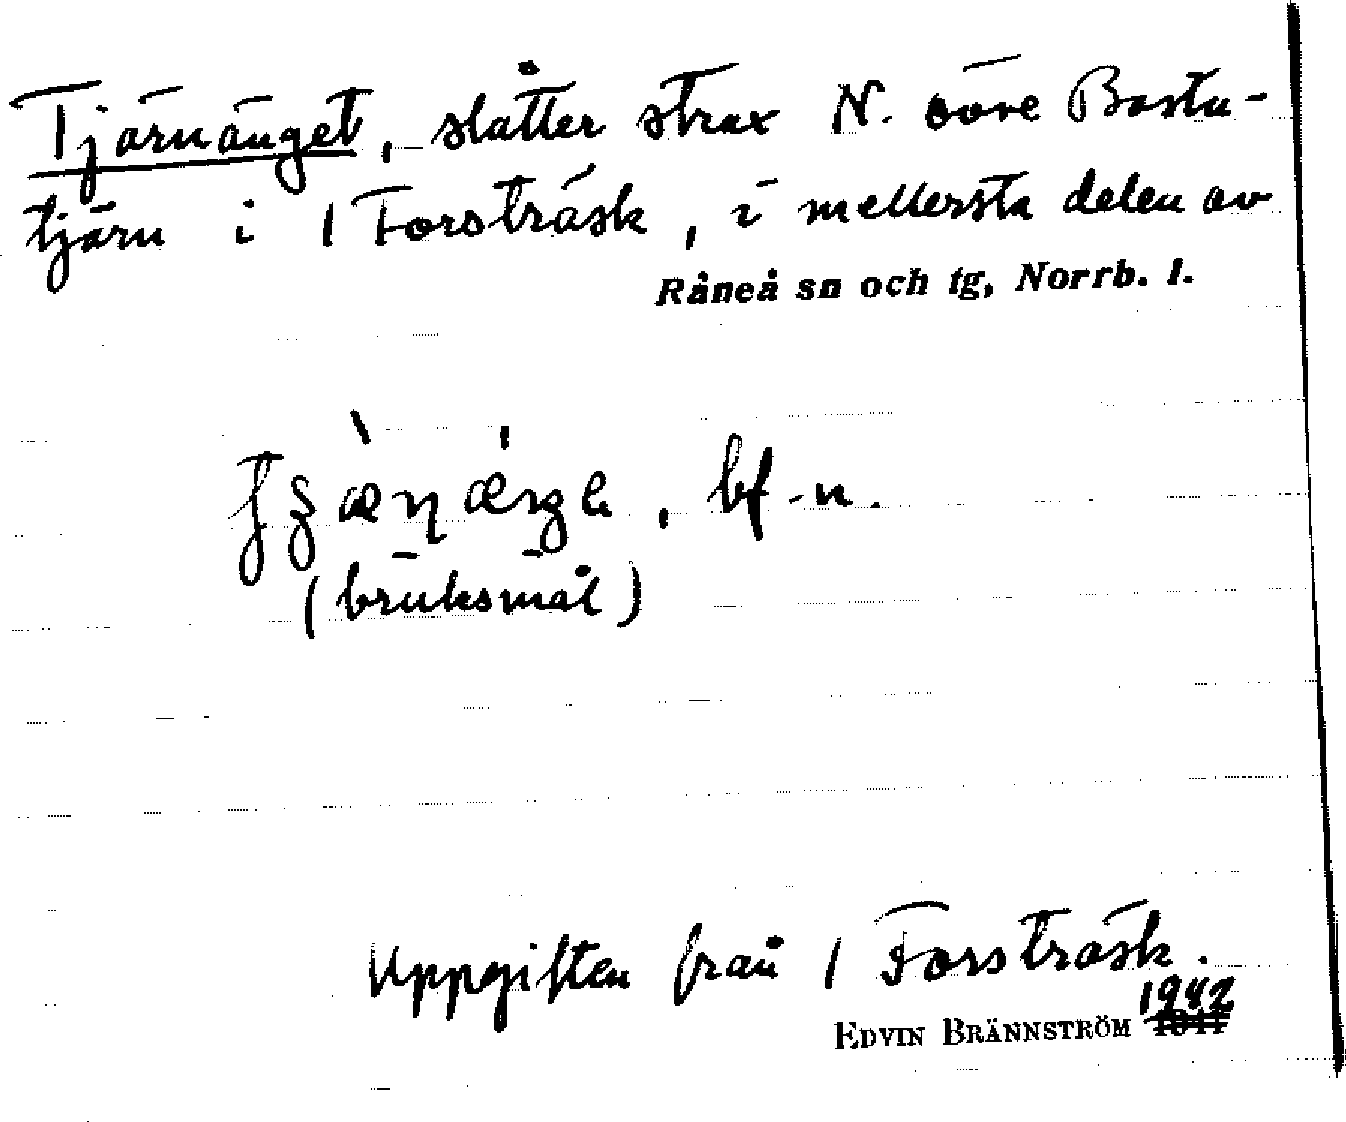 Tjärnänget, slåtter strax N. övre Bastu-
tjärn i 1 Forsträsk, i mellersta delen av
Råneå sn och tg, Norrb. l.
bf -n.
(bruksmål)
Uppgiften från 1 Forsträsk.
1942
EDVIN BRÄNNSTRÖM 1941